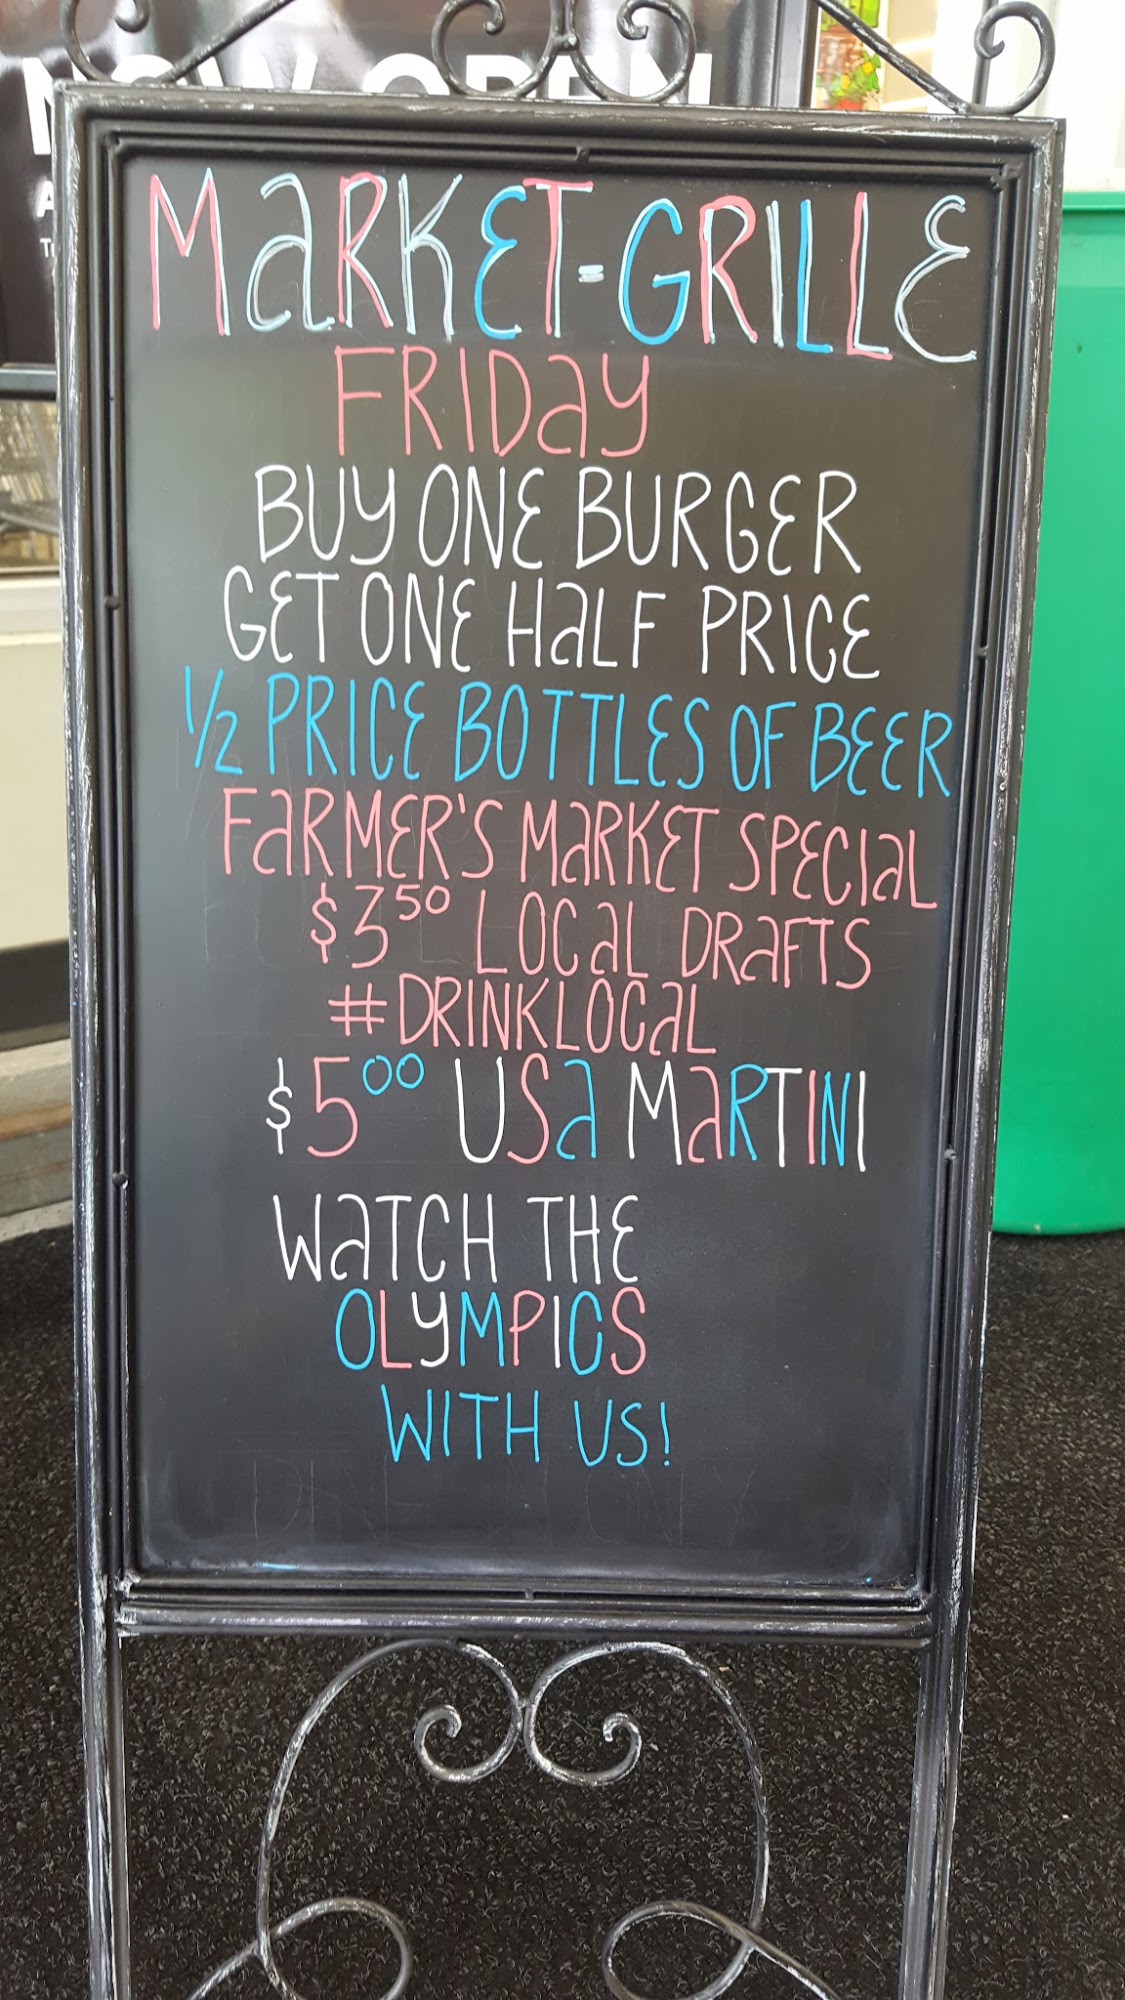 NOW OPEN
MARKET-GRILLE
FRIDAY
BUY ONE BURGER
GET ONE HALF PRICE
1/2 PRICE BOTTLES OF BEER
FARMER'S MARKET SPECIAL
$3.50 LOCAL DRAFTS
#DRINKLOCAL
$5.00 USA MARTINI
WATCH THE
OLYMPICS
WITH US!